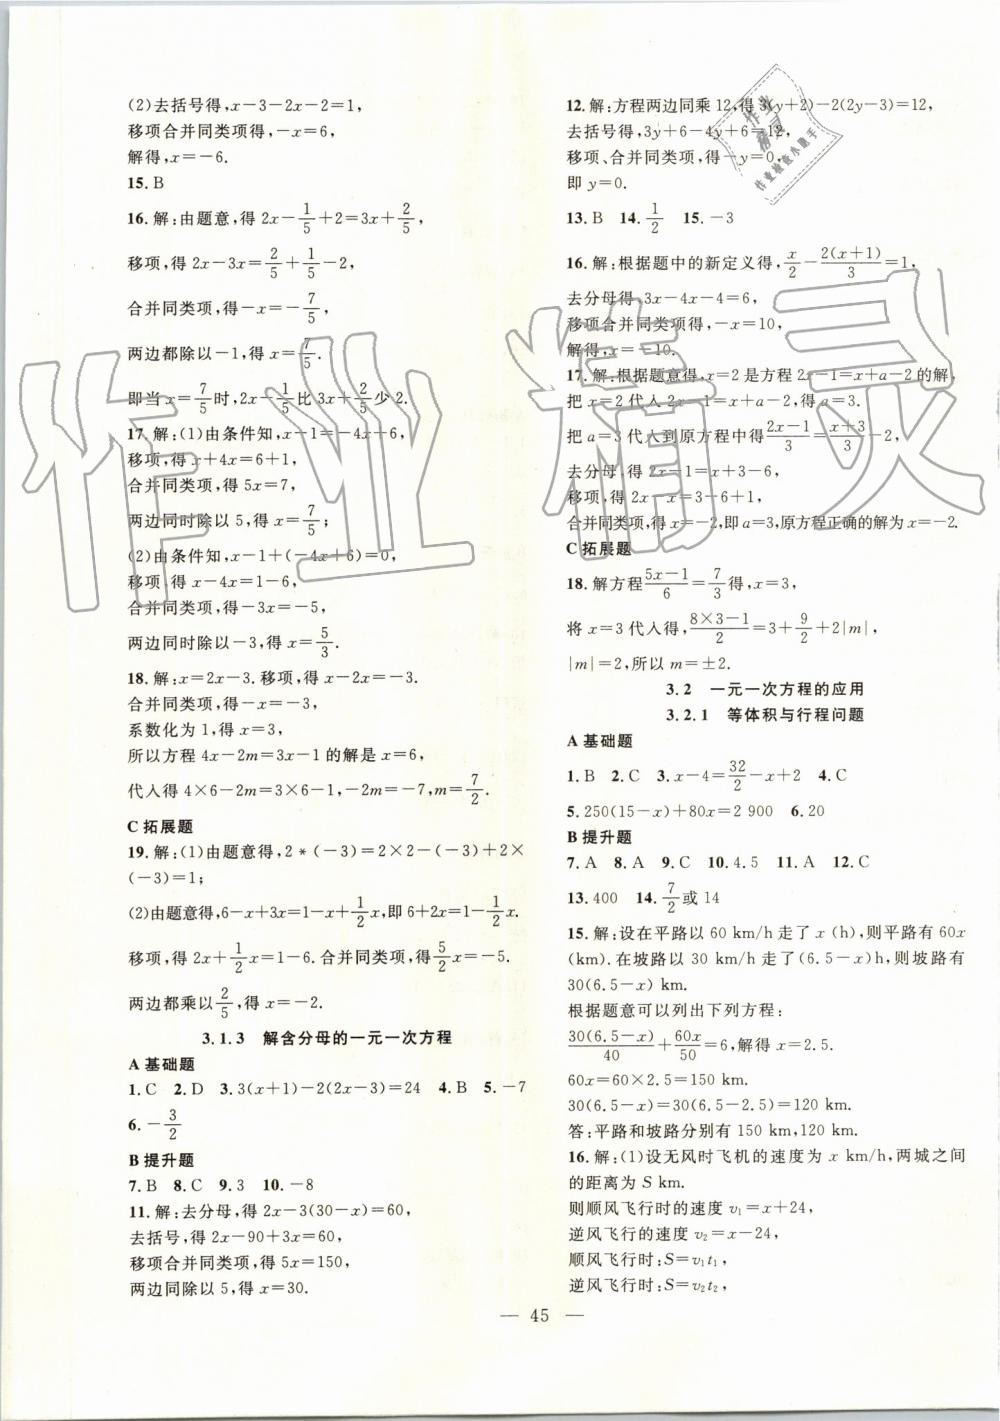 (2)去括号得,x-3-2x-2=1,
移项合并同类项得,-x=6,
解得,x=-6.
15.B
16.解:由题意,得 2x-1/5+2=3x+2/5,
移项,得 2x-3x=2/5+1/5-2,
合并同类项,得-x=-7/5,
两边都除以-1,得 x=7/5.
即当 x=7/5时,2x-1/5比 3x+2/5少 2.
17.解:(1)由条件知,x-1=-4x+6,
移项,得 x+4x=6+1,
合并同类项,得 5x=7,
两边同时除以 5,得 x=7/5;
(2)由条件知,x-1+(-4x+6)=0,
移项,得 x-4x=1-6,
合并同类项,得-3x=-5,
两边同时除以-3,得 x=5/3.
18.解:x=2x-3.移项,得 x-2x=-3.
合并同类项,得-x=-3,
系数化为 1,得 x=3,
所以方程 4x-2m=3x-1 的解是 x=6,
代入得 4×6-2m=3×6-1,-2m=-7,m=7/2.
C拓展题
19.解:(1)由题意得,2*(-3)=2×2-(-3)+2×
(-3)=1;
(2)由题意得,6-x+3x=1-x+1/2x,即 6+2x=1-1/2x.
移项,得 2x+1/2x=1-6.合并同类项,得5/2x=-5.
两边都乘以2/5,得 x=-2.
3.1.3 解含分母的一元一次方程
A基础题
1.C 2.D 3.3(x+1)-2(2x-3)=24 4.B 5.-7
6.-3/2
B提升题
7.B 8.C 9.3 10.-8
11.解:去分母,得 2x-3(30-x)=60,
去括号,得 2x-90+3x=60,
移项合并同类项,得 5x=150,
两边同除以 5,得 x=30.
12.解:方程两边同乘 12,得 3(y+2)-2(2y-3)=12,
去括号得:3y+6-4y+6=12,
移项、合并同类项得,-y=0,
即 y=0.
13.B 14.1/2 15.-3
16.解:根据题中的新定义得,x/2-2(x+1)/3=1,
去分母得,3x-4x-4=6,
移项合并同类项得,-x=10,
解得,x=-10.
17.解:根据题意得,x=2 是方程 2x-1=x+a-2 的解,
把 x=2 代入 2x-1=x+a-2,得 a=3.
把 a=3 代入到原方程中得(2x-1)/3=(x+3)/3-2,
去分母,得 2x-1=x+3-6,
移项,得 2x-x=3-6+1,
合并同类项,得 x=-2,即 a=3,原方程正确的解为 x=-2.
C拓展题
18.解方程(5x-1)/6=7/3得,x=3,
将 x=3 代入得,(8×3-1)/2=3+9/2+2|m|,
|m|=2,所以 m=±2.
3.2 一元一次方程的应用
3.2.1 等体积与行程问题
A基础题
1.B 2.C 3.x-4=32/2-x+2 4.C
5.250(15-x)+80x=2 900 6.20
B提升题
7.A 8.A 9.C 10.4.5 11.A 12.C
13.400 14.7/2或 14
15.解:设在平路以 60 km/h 走了 x (h),则平路有 60x
(km).在坡路以 30 km/h 走了(6.5-x)h,则坡路有
30(6.5-x) km.
根据题意可以列出下列方程:
30(6.5-x)/40+60x/50=6,解得 x=2.5.
60x=60×2.5=150 km.
30(6.5-x)=30(6.5-2.5)=120 km.
答:平路和坡路分别有 150 km,120 km.
16.解:(1)设无风时飞机的速度为 x km/h,两城之间
的距离为 S km.
则顺风飞行时的速度 v₁=x+24,
逆风飞行的速度 v₂=x-24,
顺风飞行时:S=v₁t₁,
逆风飞行时:S=v₂t₂,
— 45 —
作业精灵
作业
精灵
作业检查小助手